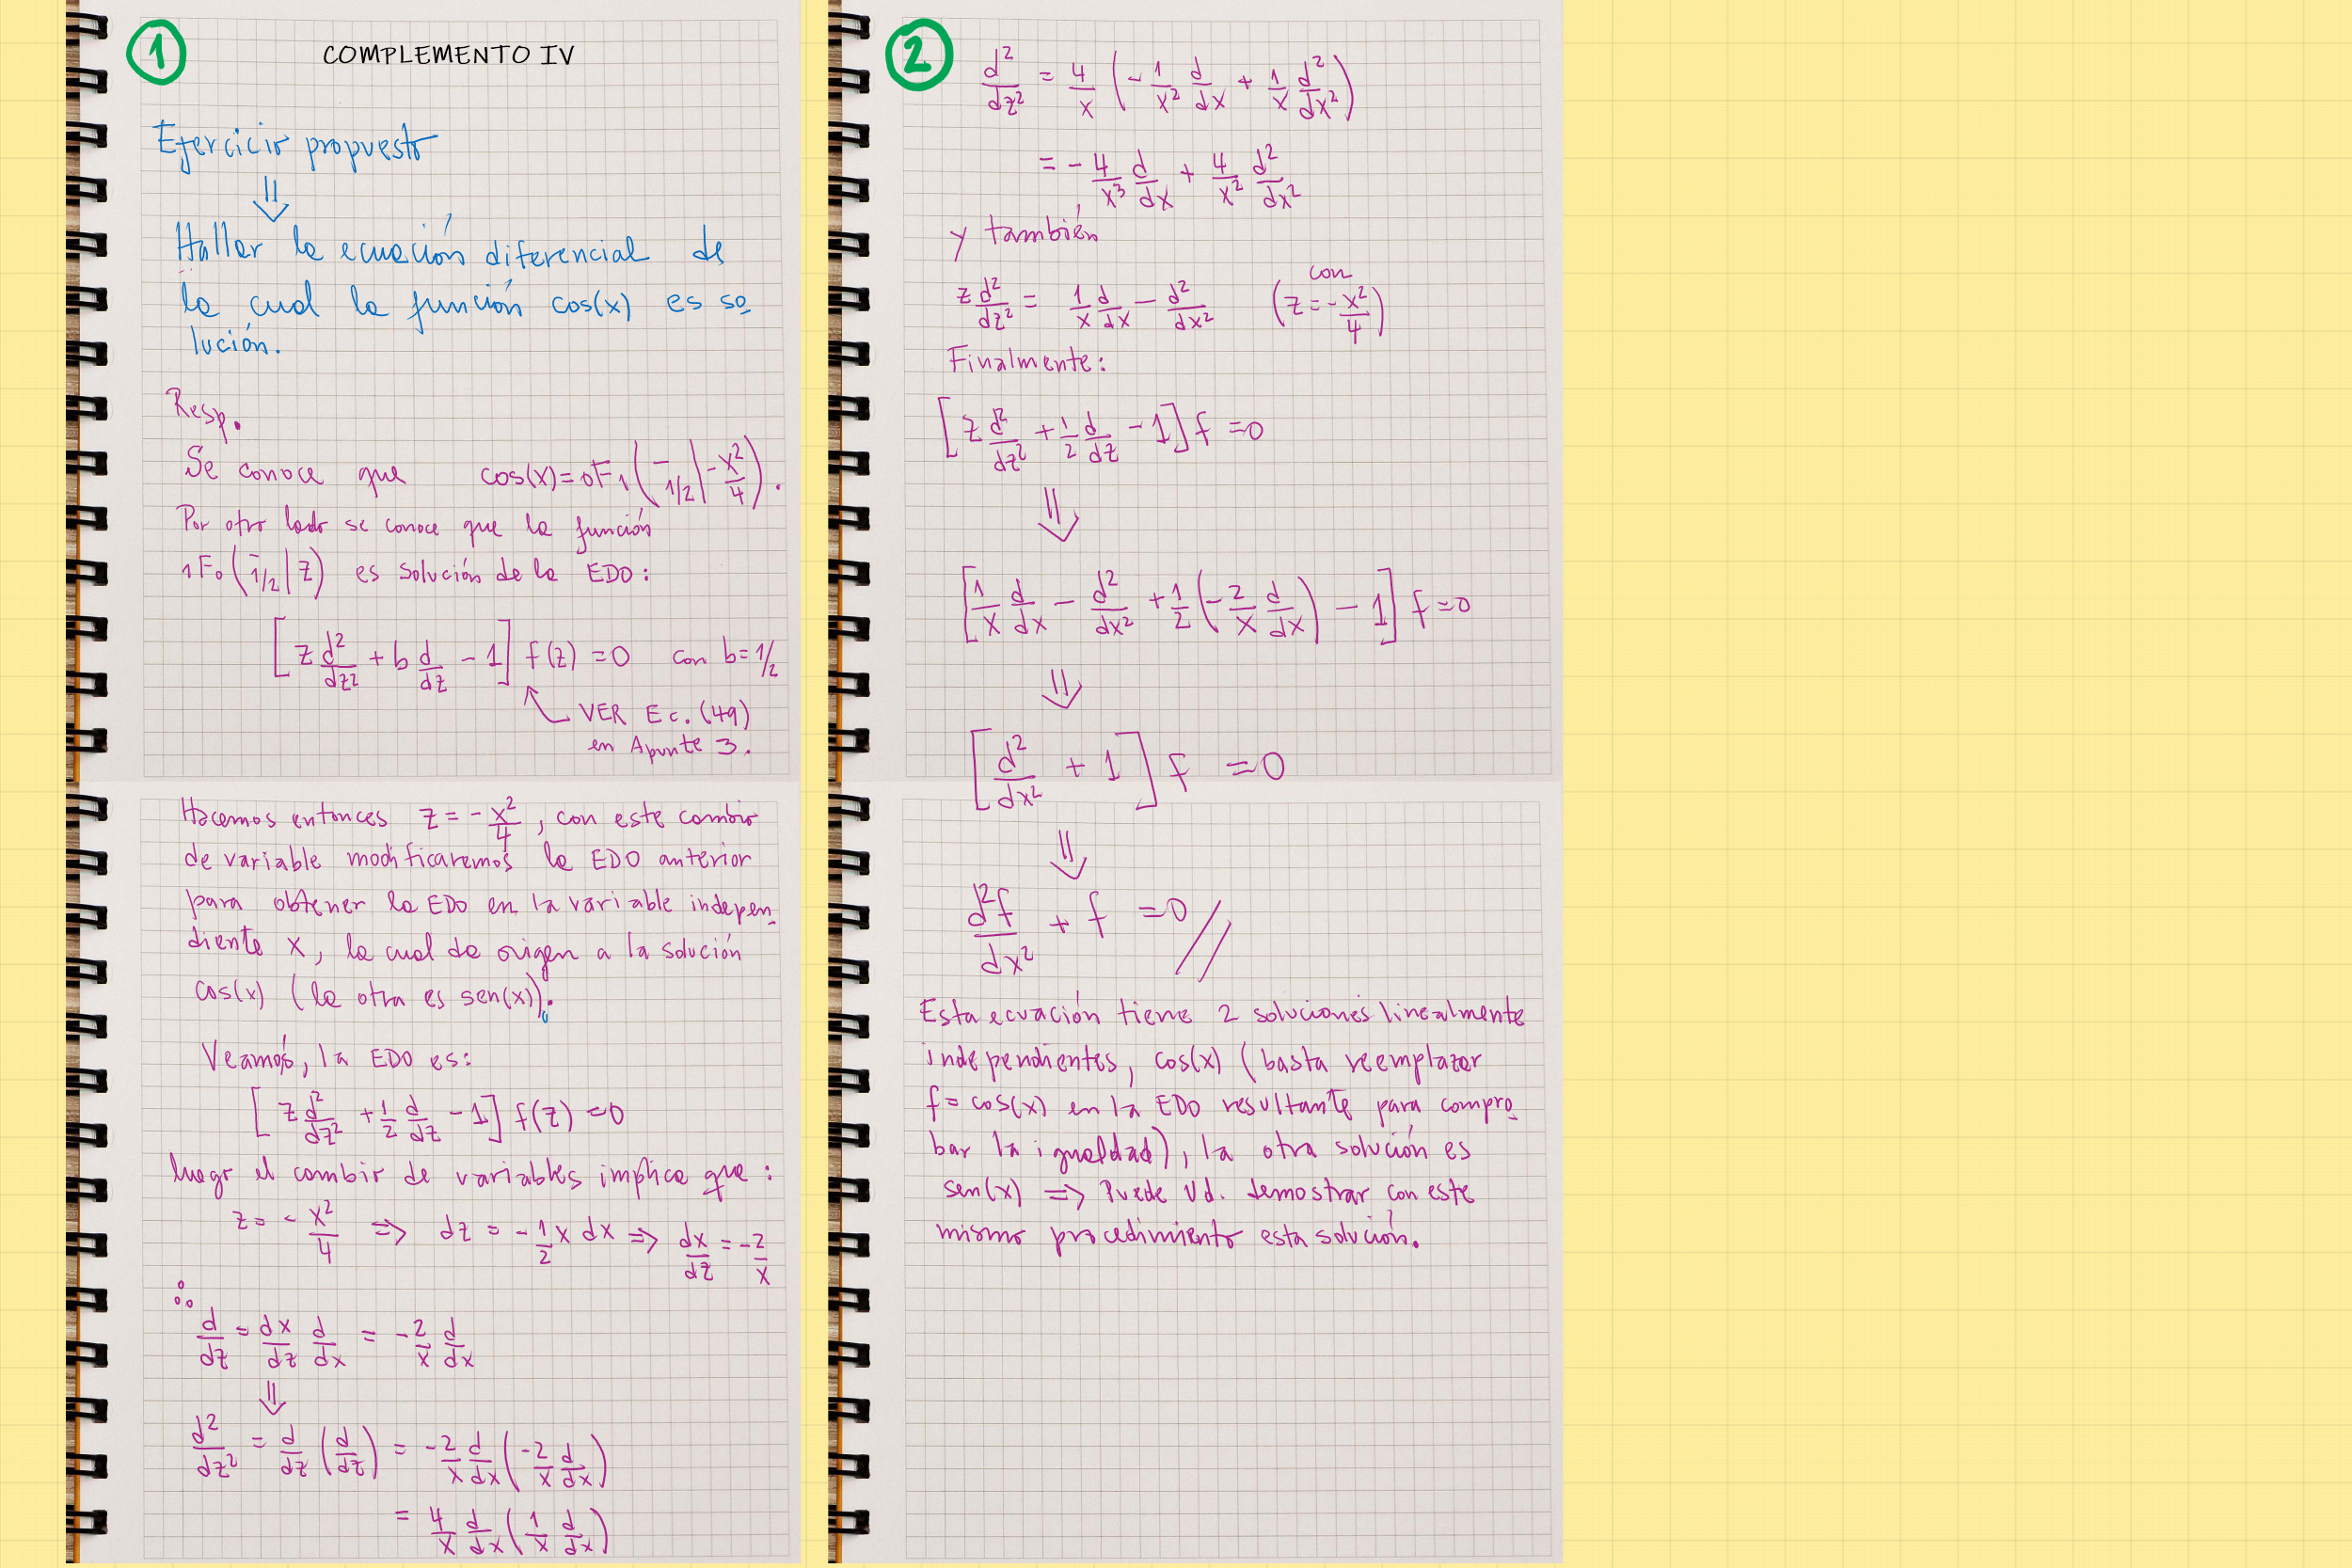 1
COMPLEMENTO IV
Ejercicio propuesto
⇓
Hallar la ecuación diferencial de
la cual la función cos(x) es so
lución.
Resp.
Se conoce que cos(x) = 0F1(-; 1/2 | -x²/4).
Por otro lado se conoce que la función
1F0(-; 1/2 | z) es solución de la EDO:
[z d²/dz² + b d/dz - 1] f(z) = 0 con b = 1/2
VER Ec. (49)
en Apunte 3.
Hacemos entonces z = -x²/4, con este cambio
de variable modificaremos la EDO anterior
para obtener la EDO en la variable indepen
diente x, la cual da origen a la solución
cos(x) (la otra es sen(x)).
Veamos, la EDO es:
[z d²/dz² + 1/2 d/dz - 1] f(z) = 0
luego el cambio de variables implica que:
z = -x²/4 ⇒ dz = -1/2 x dx ⇒ dx/dz = -2/x
∴
d/dz = dx/dz d/dx = -2/x d/dx
⇓
d²/dz² = d/dz (d/dz) = -2/x d/dx (-2/x d/dx)
= 4/x d/dx (1/x d/dx)
2
d²/dz² = 4/x (-1/x² d/dx + 1/x d²/dx²)
= -4/x³ d/dx + 4/x² d²/dx²
y también
z d²/dz² = 1/x d/dx - d²/dx² (con z = -x²/4)
Finalmente:
[z d²/dz² + 1/2 d/dz - 1] f = 0
⇓
[1/x d/dx - d²/dx² + 1/2 (-2/x d/dx) - 1] f = 0
⇓
[d²/dx² + 1] f = 0
⇓
d²f/dx² + f = 0 //
Esta ecuación tiene 2 soluciones linealmente
independientes, cos(x) (basta reemplazar
f = cos(x) en la EDO resultante para compro
bar la igualdad), la otra solución es
sen(x) ⇒ Puede Ud. demostrar con este
mismo procedimiento esta solución.